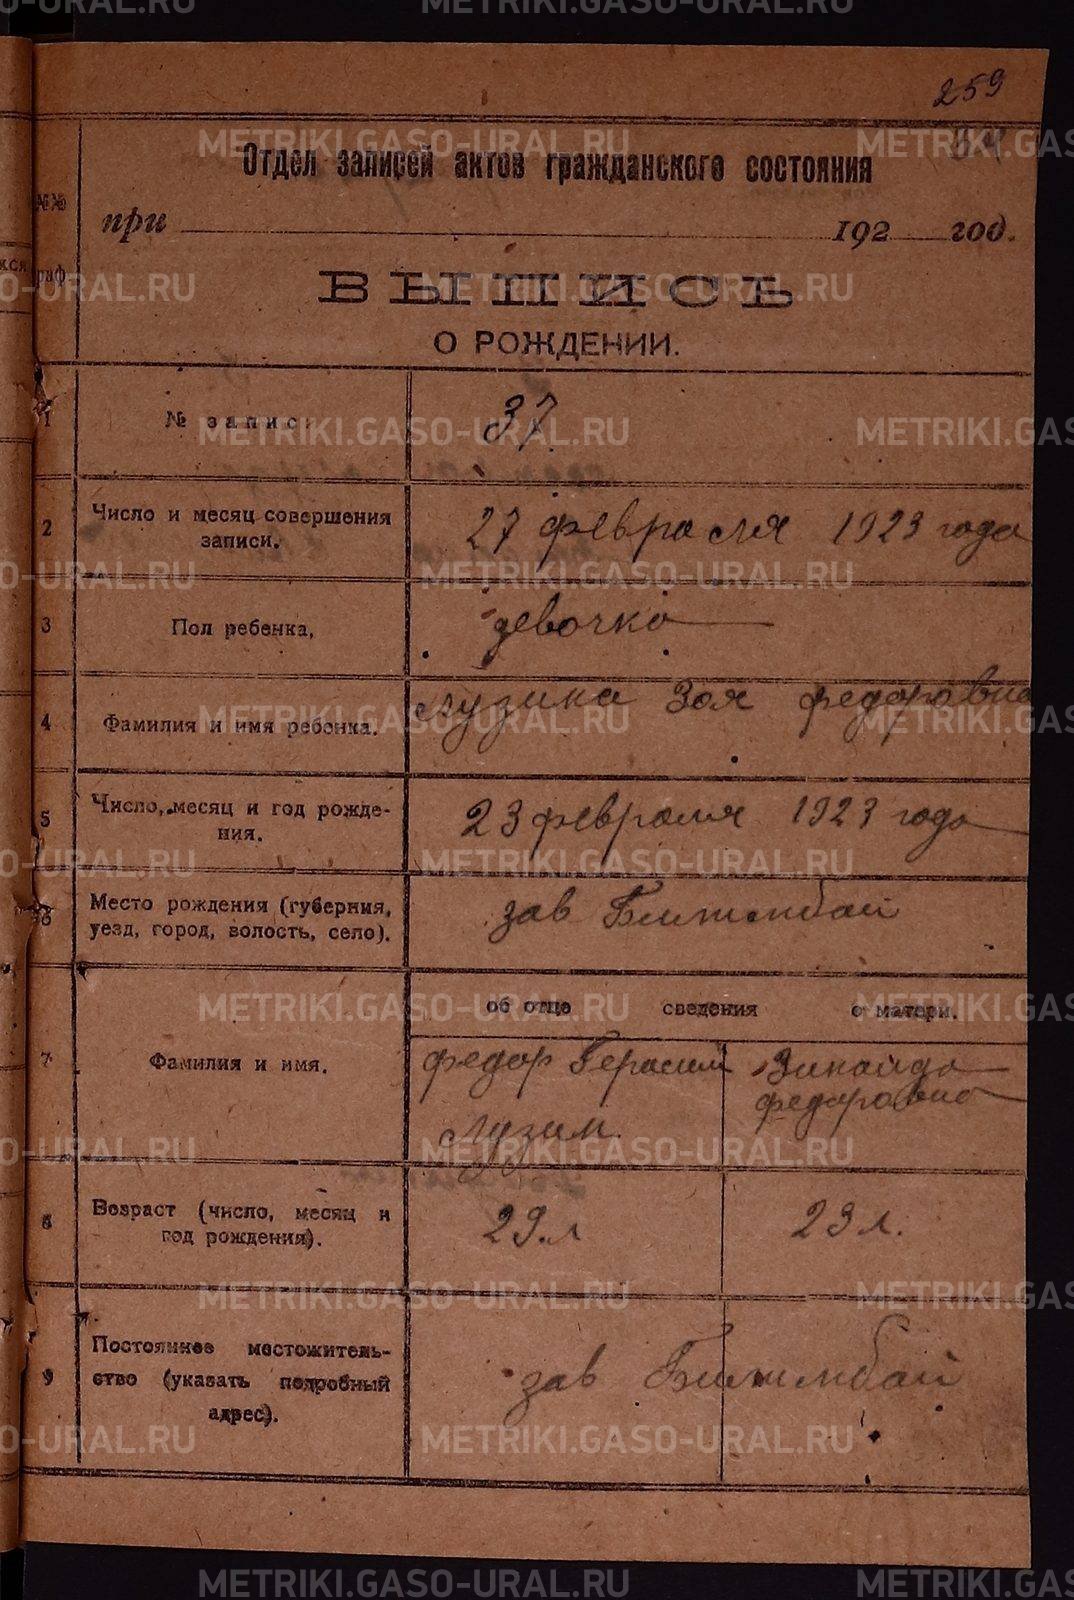 259
Отдел записей актов гражданского состояния
№№ граф.
при 192 год.
ВЫПИСЬ
О РОЖДЕНИИ.
1 № запис. 37
2 Число и месяц совершения 27 февраля 1923 года
записи.
3 Пол ребенка, девочка
4 Фамилия и имя ребенка. Лузина Зоя Федоравна
5 Число, месяц и год рожде- 23 февраля 1923 года
ния.
6 Место рождения (губерния, зав Билимбай
уезд, город, волость, село).
об отце сведения о матери.
7 Фамилия и имя. Федор Герасим Зинаида
Лузин. Федоравна
8 Возраст (число, месяц и 29.л 23 л.
год рождения).
9 Постоянное местожитель-
ство (указать подробный зав Билимбай
адрес).
METRIKI.GASO-URAL.RU